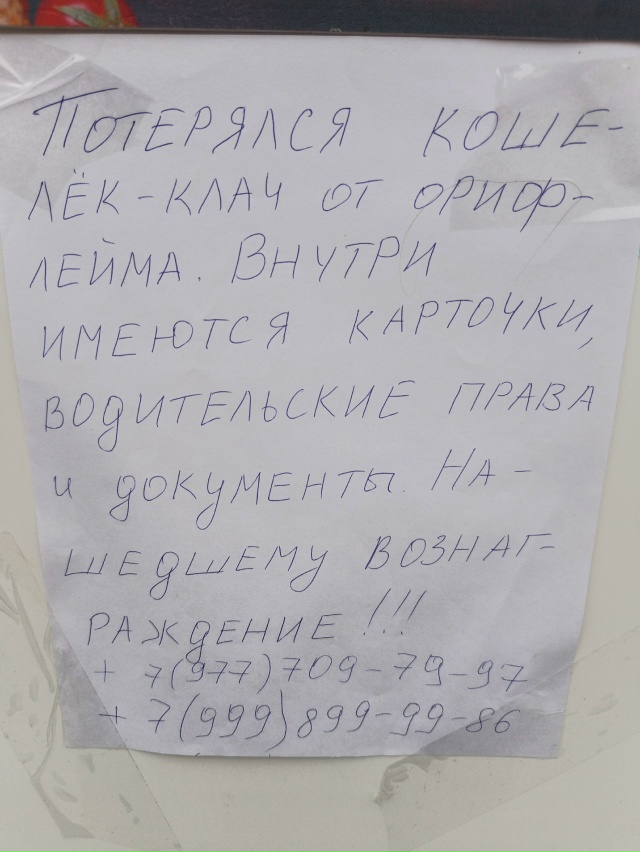 ПОТЕРЯЛСЯ КОШЕ-
ЛЁК-КЛАЧ ОТ ОРИФ-
ЛЕЙМА. ВНУТРИ
ИМЕЮТСЯ КАРТОЧКИ,
ВОДИТЕЛЬСКИЕ ПРАВА
и ДОКУМЕНТЫ. НА-
ШЕДШЕМУ ВОЗНАГ-
РАЖДЕНИЕ!!!
+7(977)709-79-97
+7(999)899-99-86